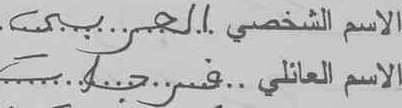 الاسم الشخصي العربي
الاسم العائلي فرجات